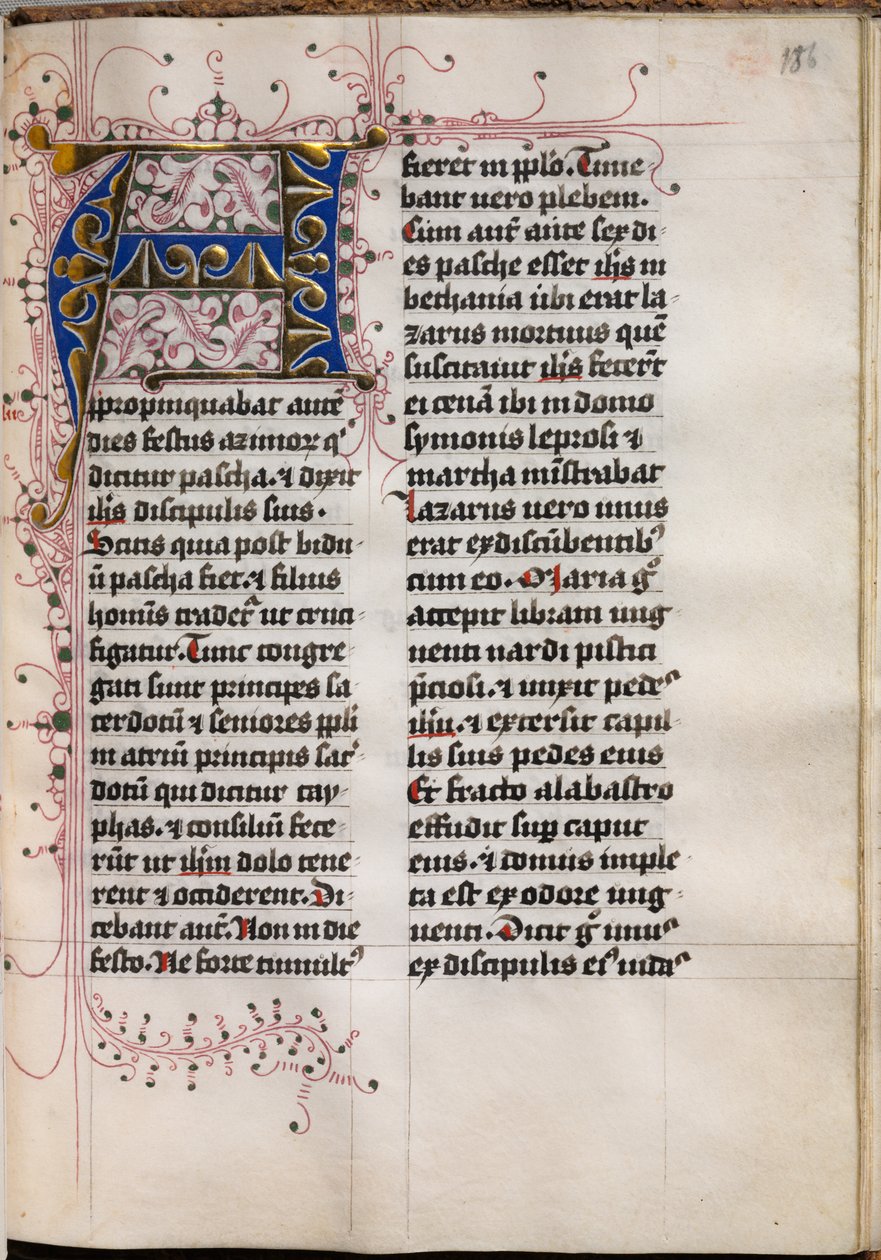 186
A
ppropinquabat autē
dies festus azimoꝝ qͥ
dicitur pascha.⁊ dixit
ihs discipulis suis.
Scitis quia post bidu⸗
ū pascha fiet.⁊ filius
homīs tradet᷑ ut cruci⸗
figatur.Tunc congre⸗
gati sunt principes sa⸗
cerdotū ⁊ seniores ppli
in atriū principis sac̄⸗
dotū qui dicitur cay⸗
phas.⁊ consiliū fece⸗
rūt ut ihm dolo tene⸗
rent ⁊ occiderent.Di⸗
cebant aut̄.Non in die
festo.Ne forte tumultꝰ
fieret in pplo.Time⸗
bant uero plebem.
Cum aut̄ ante sex di⸗
es pasche esset ihs in
bethania ubi erat la⸗
zarus mortuus quē
suscitauit ihs fecer̄t
ei cenā ibi in domo
symonis leprosi ⁊
martha mīstrabat
Lazarus uero unus
erat ex discūbentibꝰ
cum eo.Maria gͦ
accepit libram ung⸗
uenti nardi pistici
p̄ciosi.⁊ unxit pedes
ihu.⁊ extersit capil⸗
lis suis pedes eius
Et fracto alabastro
effudit sup caput
eius.⁊ domus imple⸗
ta est ex odore ung⸗
uenti.Dicit gͦ unus
ex discipulis eiꝰ iudas